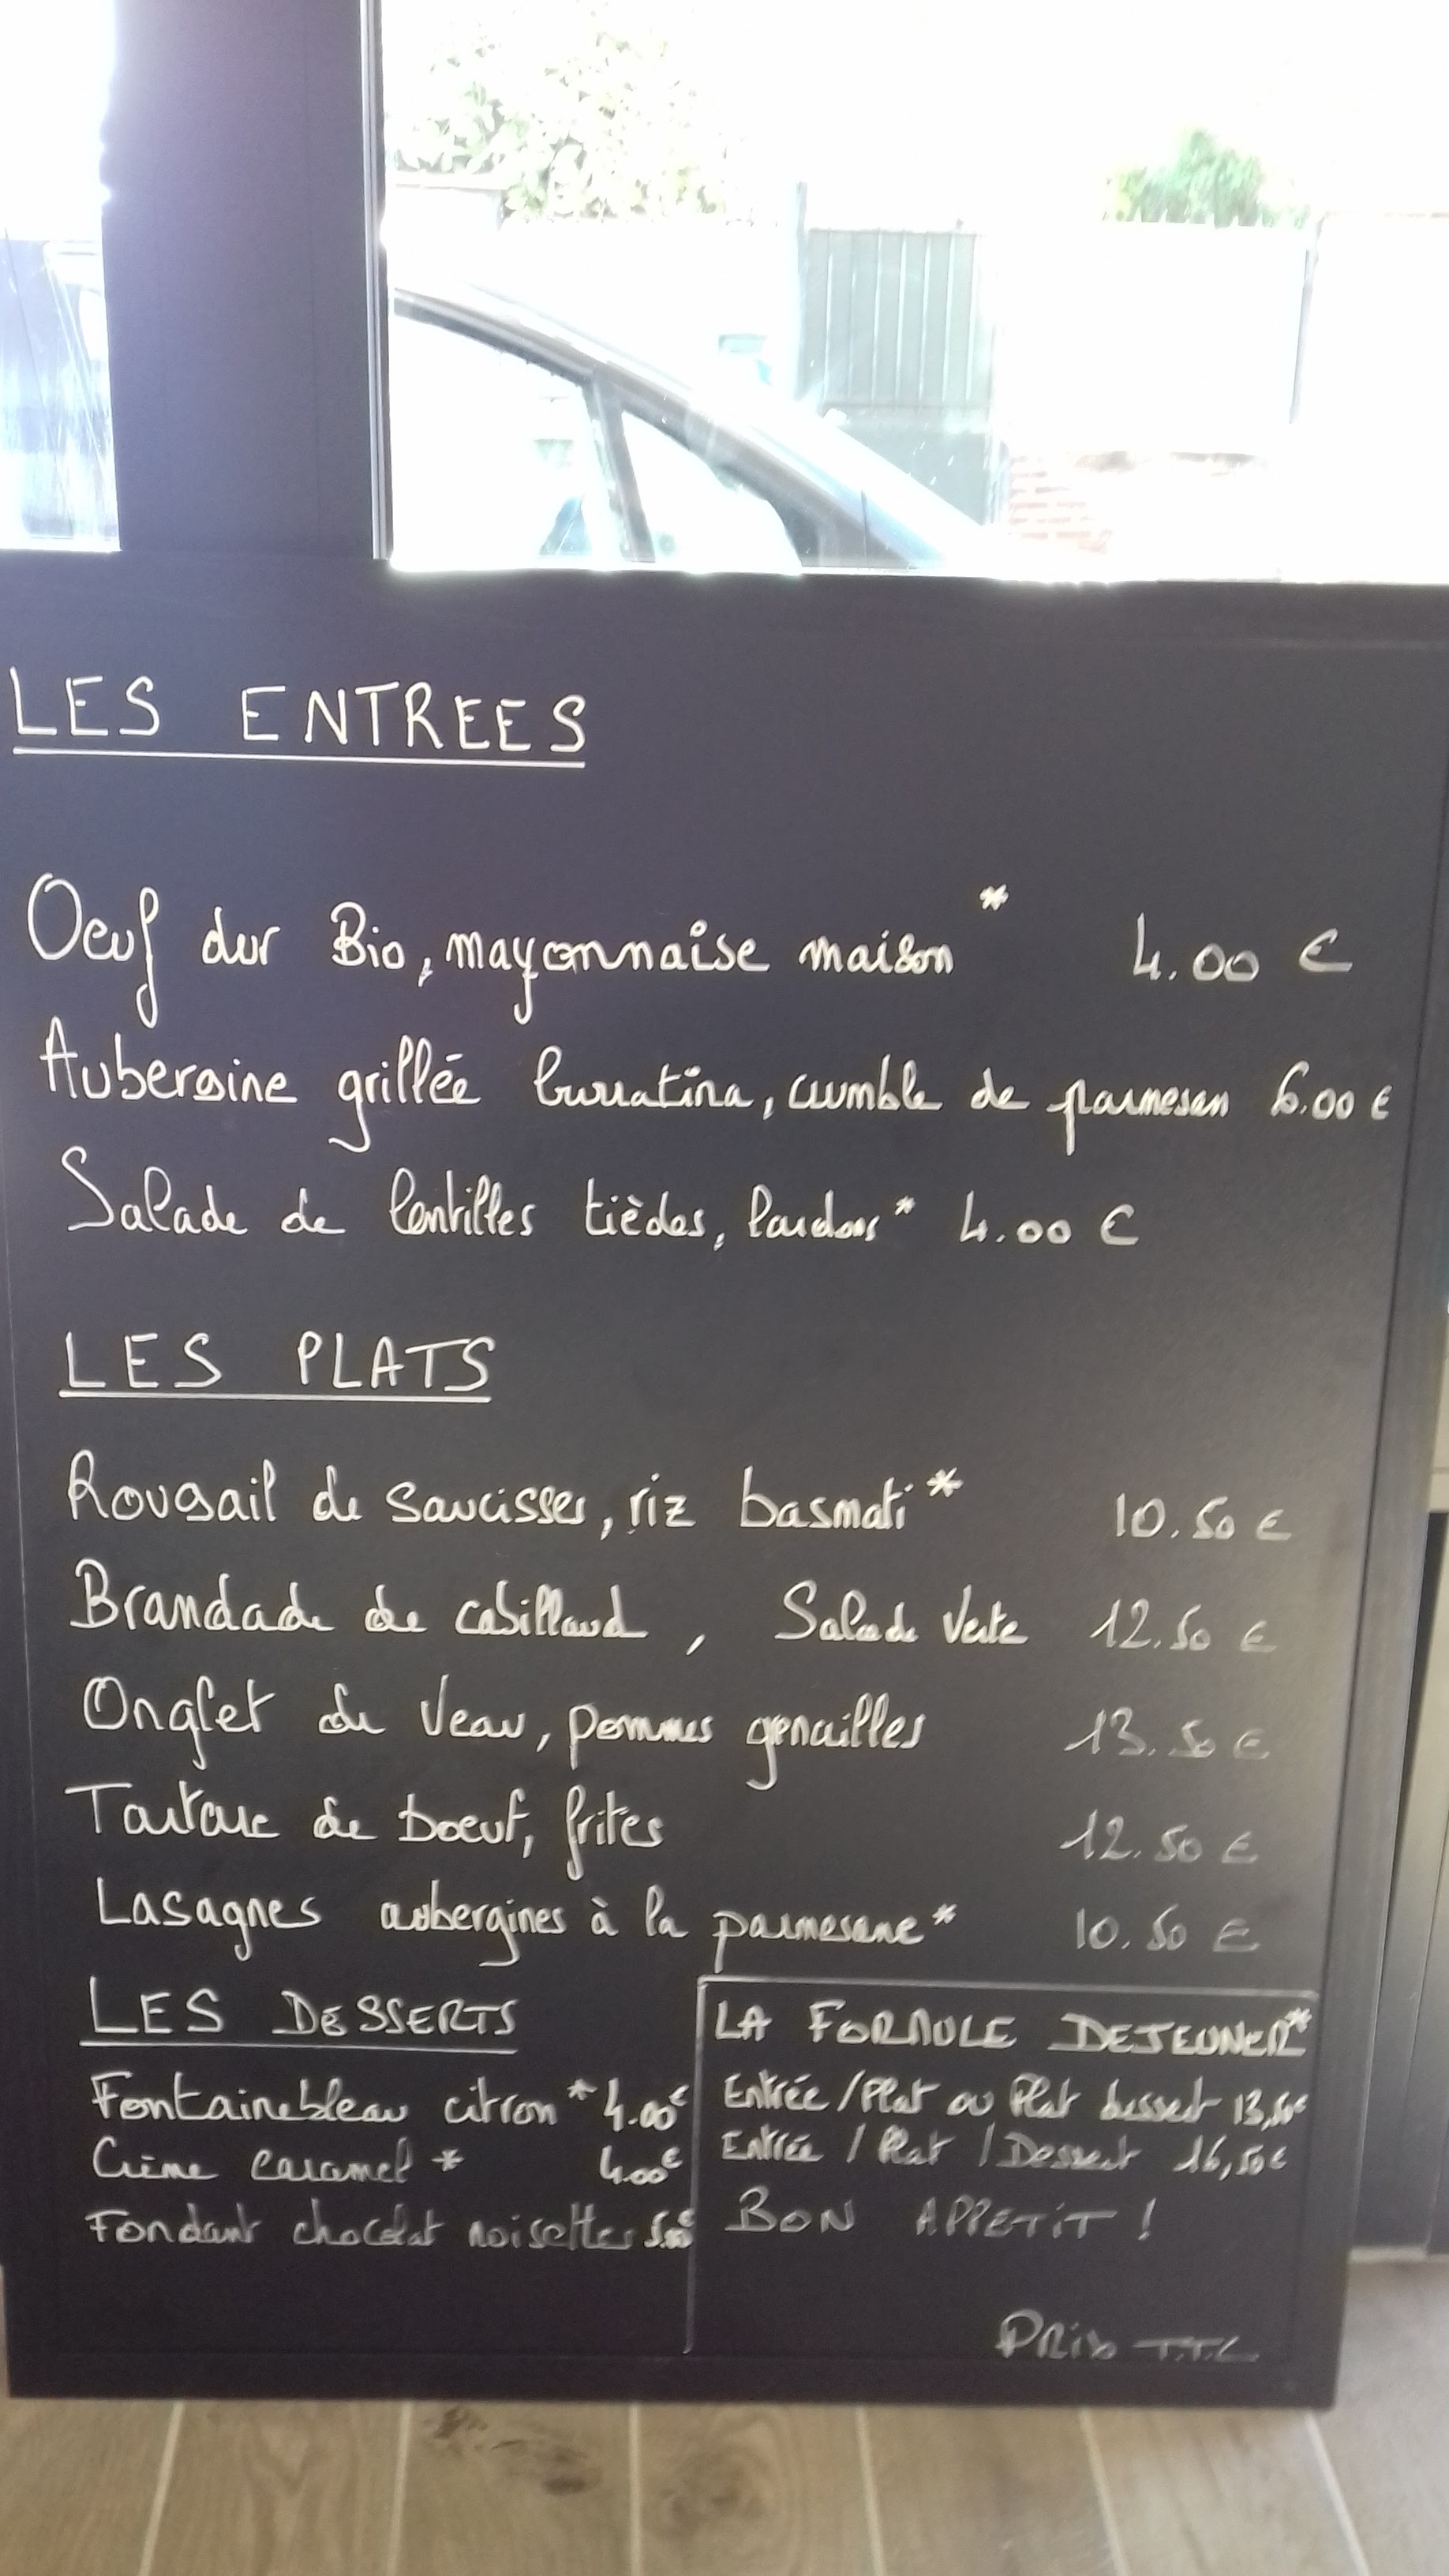 LES ENTREES
Oeuf dur Bio, mayonnaise maison * 4.00 €
Aubergine grillée burratina, crumble de parmesan 6.00 €
Salade de lentilles tièdes, lardons * 4.00 €
LES PLATS
Rougail de saucisses, riz basmati * 10.50 €
Brandade de cabillaud, Salade Verte 12.50 €
Onglet de Veau, pommes grenailles 13.50 €
Tartare de boeuf, frites 12.50 €
Lasagnes aubergines à la parmesane * 10.50 €
LES DESSERTS
Fontainebleau citron * 4.00€
Crème caramel * 4.00€
Fondant chocolat noisettes 5.00€
LA FORMULE DEJEUNER*
Entrée / Plat ou Plat dessert 13,50€
Entrée / Plat / Dessert 16,50€
BON APPETIT !
Prix T.T.C